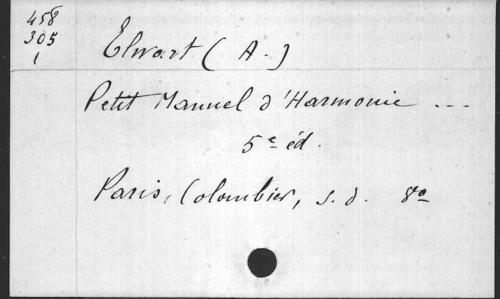 458
305
1
Elwart (A.)
Petit Manuel d'Harmonie ---
5e éd.
Paris, Colombier, s.d. 8o